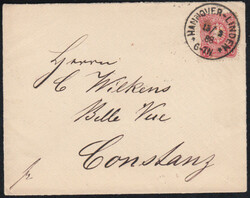 * HANNOVER-LINDEN *
9-1N
Herrn
C Wilkens
Belle Vue
Constanz
fr.